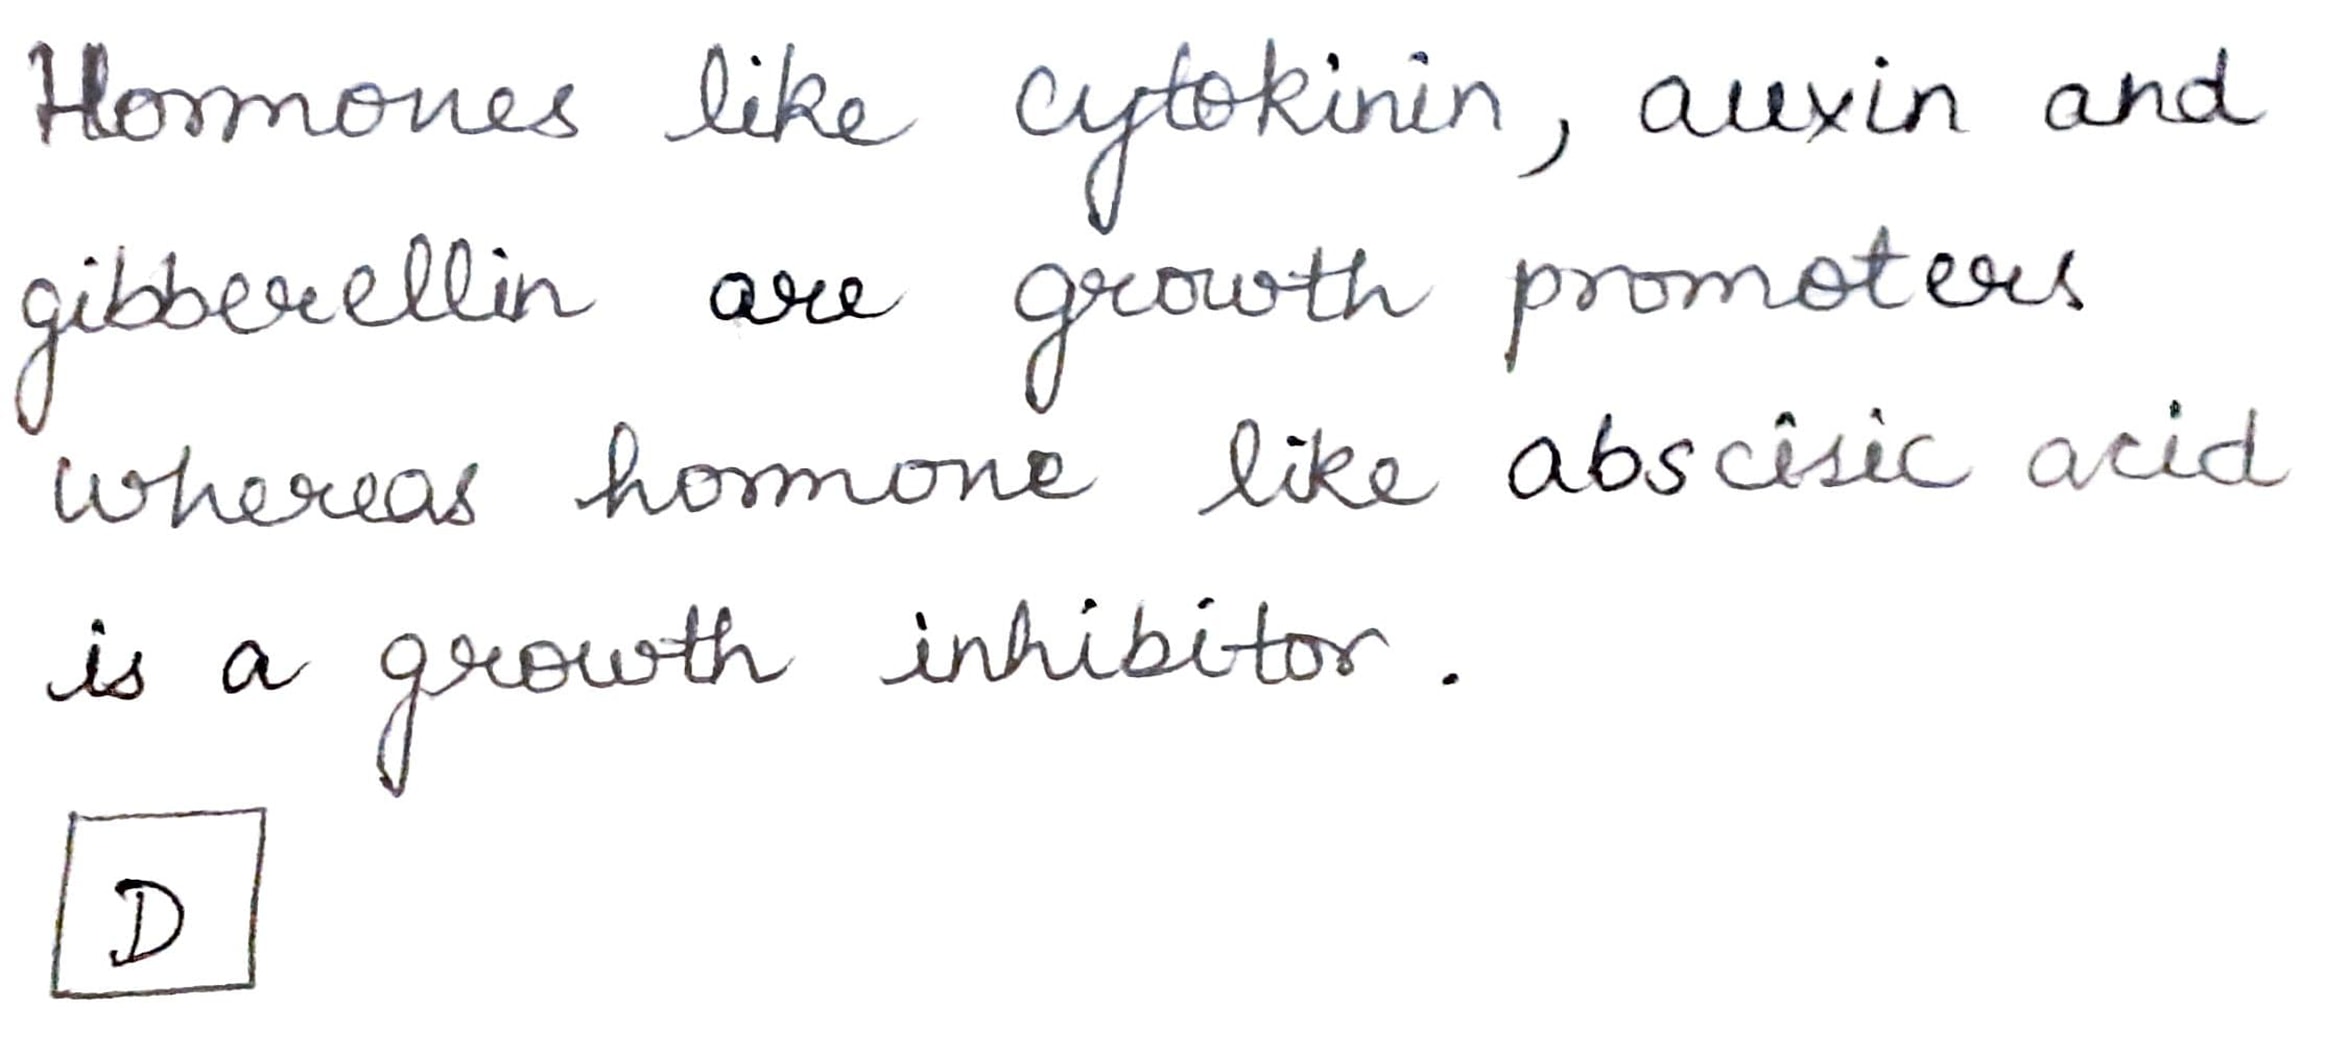 Hormones like cytokinin, auxin and
gibberellin are growth promoters
whereas hormone like abscisic acid
is a growth inhibitor.
D